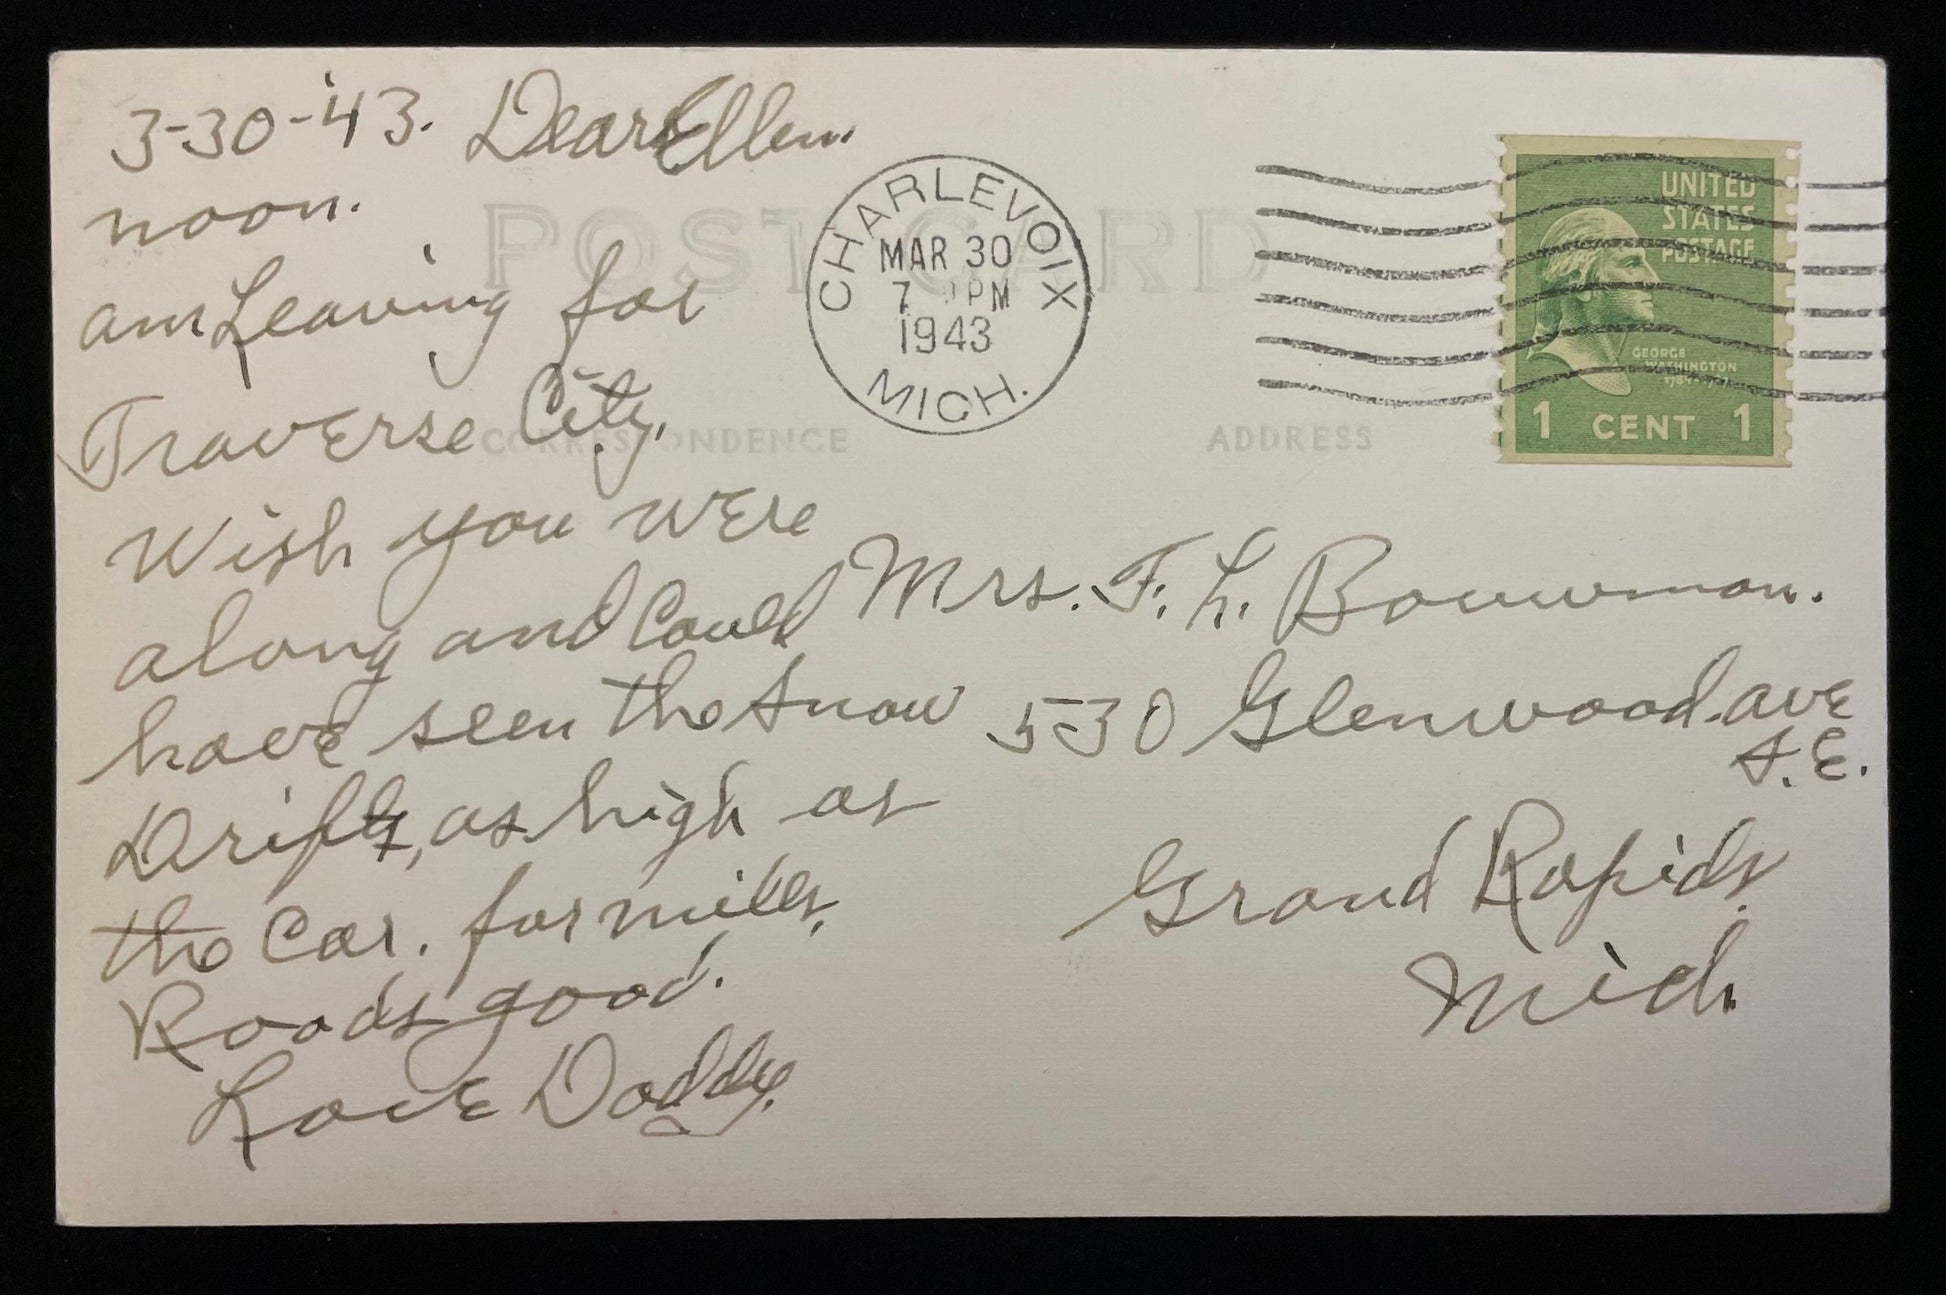 3-30-'43. Dear Ellen.
noon.
am Leaving for
Traverse City.
Wish you were
along and Could
have seen the Snow
Drifts, as high as
the Car. for miles,
Roads good.
Love Daddy.
POST CARD
CORRESPONDENCE
ADDRESS
CHARLEVOIX
MAR 30
7 PM
1943
MICH.
UNITED
STATES
POSTAGE
GEORGE
WASHINGTON
1 CENT 1
Mrs. F. L. Bouwman.
530 Glenwood. ave
S.E.
Grand Rapids.
Mich.